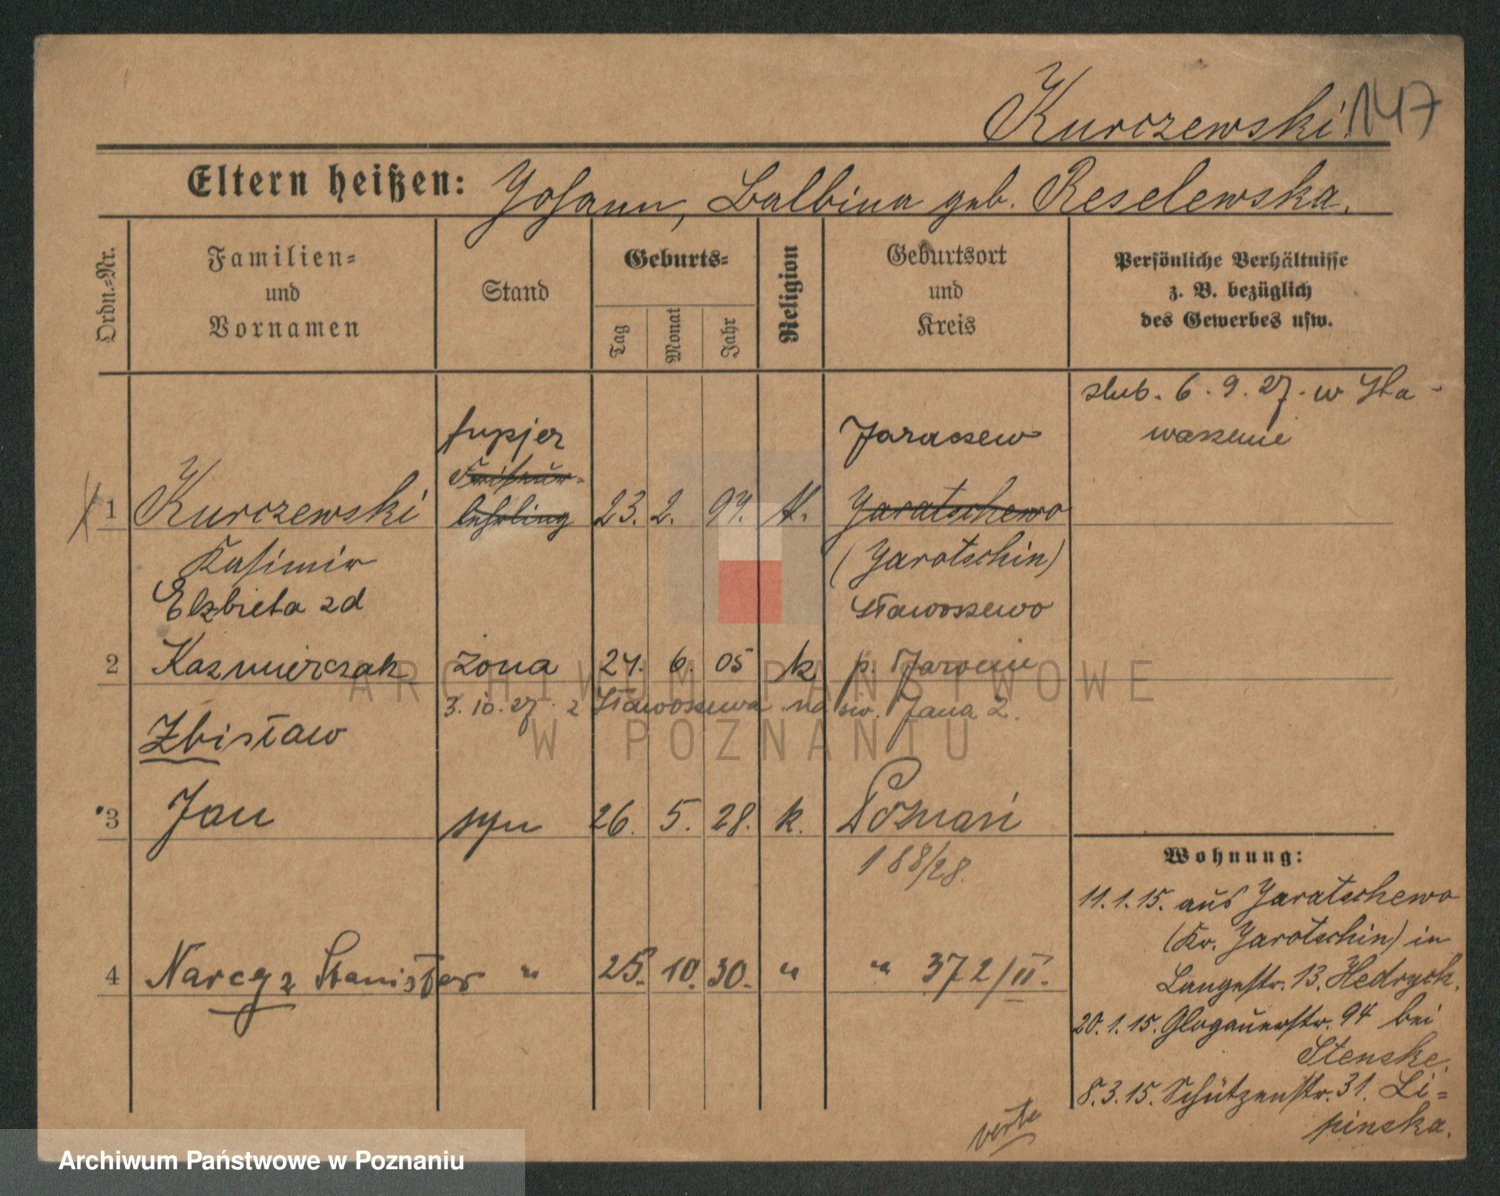 Kurczewski 147
Eltern heißen: Johann, Balbina geb. Reselewska.
Ordn.-Nr.
Familien- und Vornamen
Stand
Geburts-
Tag
Monat
Jahr
Religion
Geburtsort und Kreis
Persönliche Verhältnisse
z. B. bezüglich
des Gewerbes usw.
ślub. 6.9.27. w Sta-
fryzjer Jaraczew
1 Kurczewski lehrling 23. 2. 94. K. Jaratschewo
Kasimir (Jarotschin)
Elzbieta zd Sławoszewo
2 Kazmierczak żona 24. 6. 05 k p. Jarocin
3.10.27 z Sławoszewa na św. Jana 2.
Zbisław
3 Jan syn 26. 5. 28. k. Poznań
188/28.
4 Narcyz Stanisław " 25. 10. 30. " " 372/II.
Wohnung:
11.1.15. aus Jaratschewo
(Kr. Jarotschin) in
Langestr. 13. Hedrych.
20.1.15. Glogauerstr. 94 bei
Stenske.
8.3.15. Schützenstr. 31. Li-
pinska.
verte
ARCHIWUM PAŃSTWOWE
W POZNANIU
Archiwum Państwowe w Poznaniu